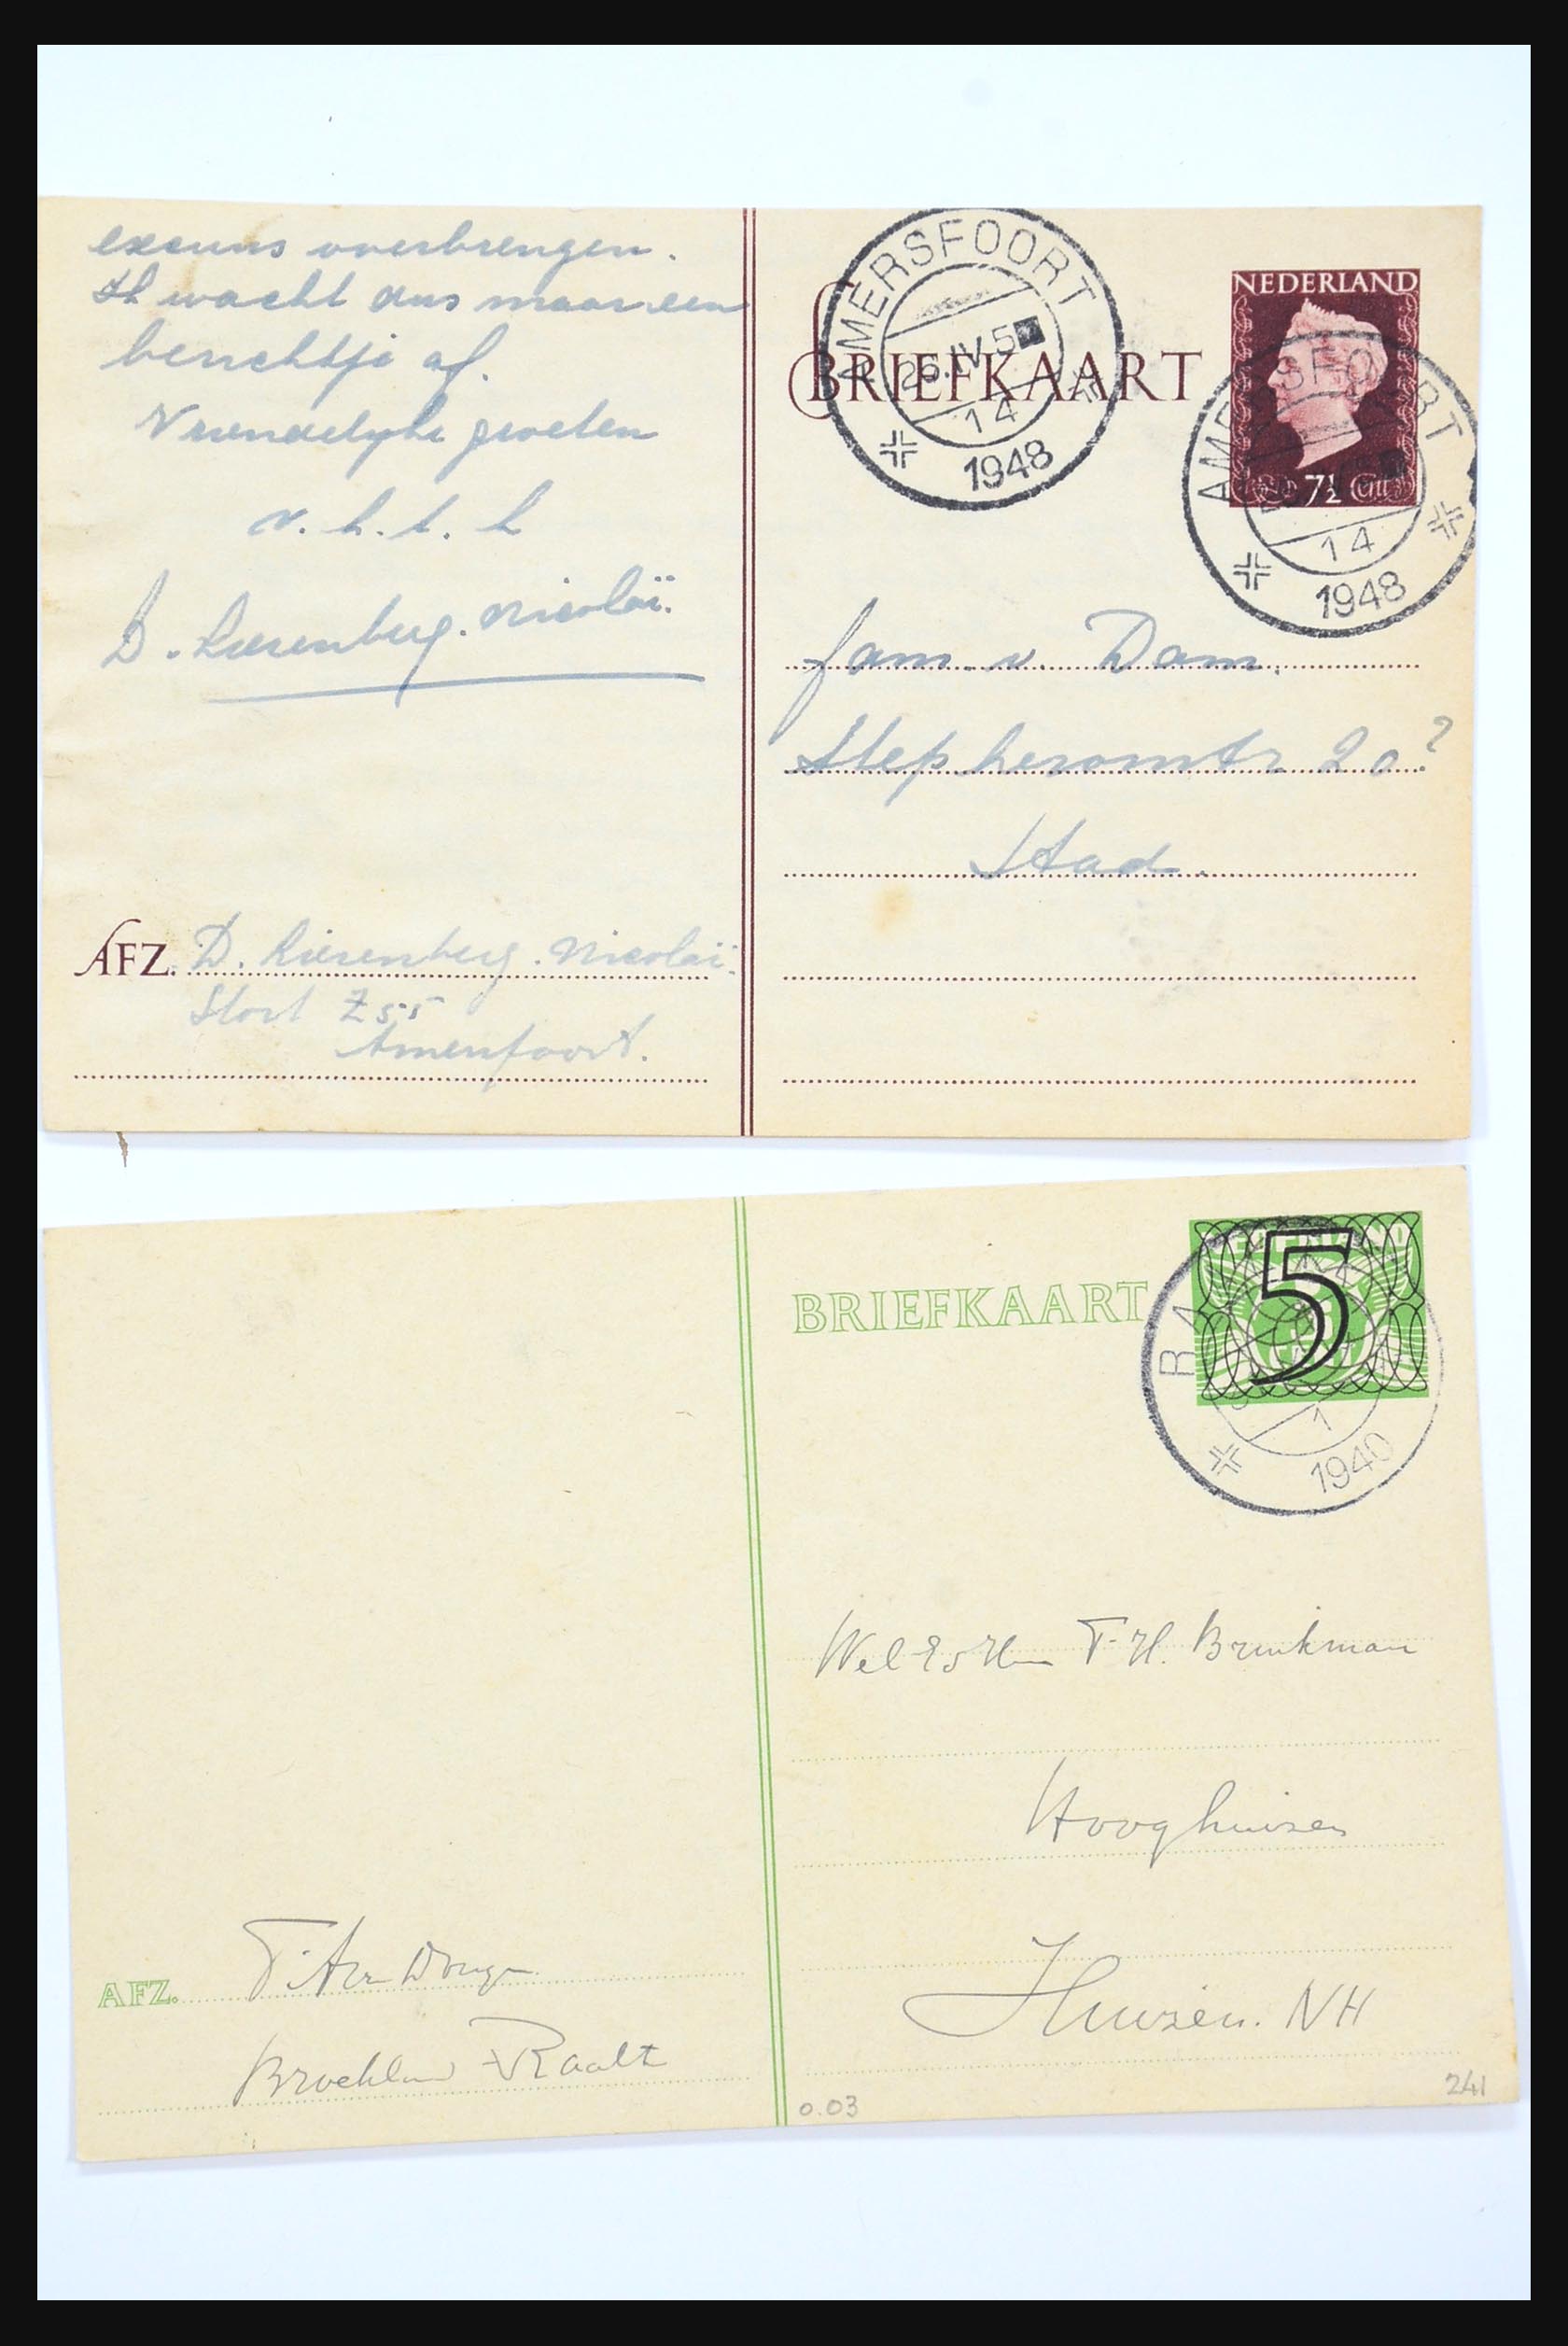 excuus overbrengen.
Ik wacht dus maar een
berichtje af.
Vriendelijke groeten
v. h. t. h
D. Liesenberg. Nicolaï.
AFZ. D. Liesenberg. Nicolaï.
Stort Z 55
Amersfoort.
AMERSFOORT
26.IV.5
14
1948
BRIEFKAART
NEDERLAND
7½ Cent
AMERSFOORT
14
1948
fam. v. Dam.
20?
Stad.
BRIEFKAART
NEDERLAND
5
1
1940
T. H. Brinkman
Hooghuizen
Huizen. NH
AFZ.
Broekland Raalte
0.03
241